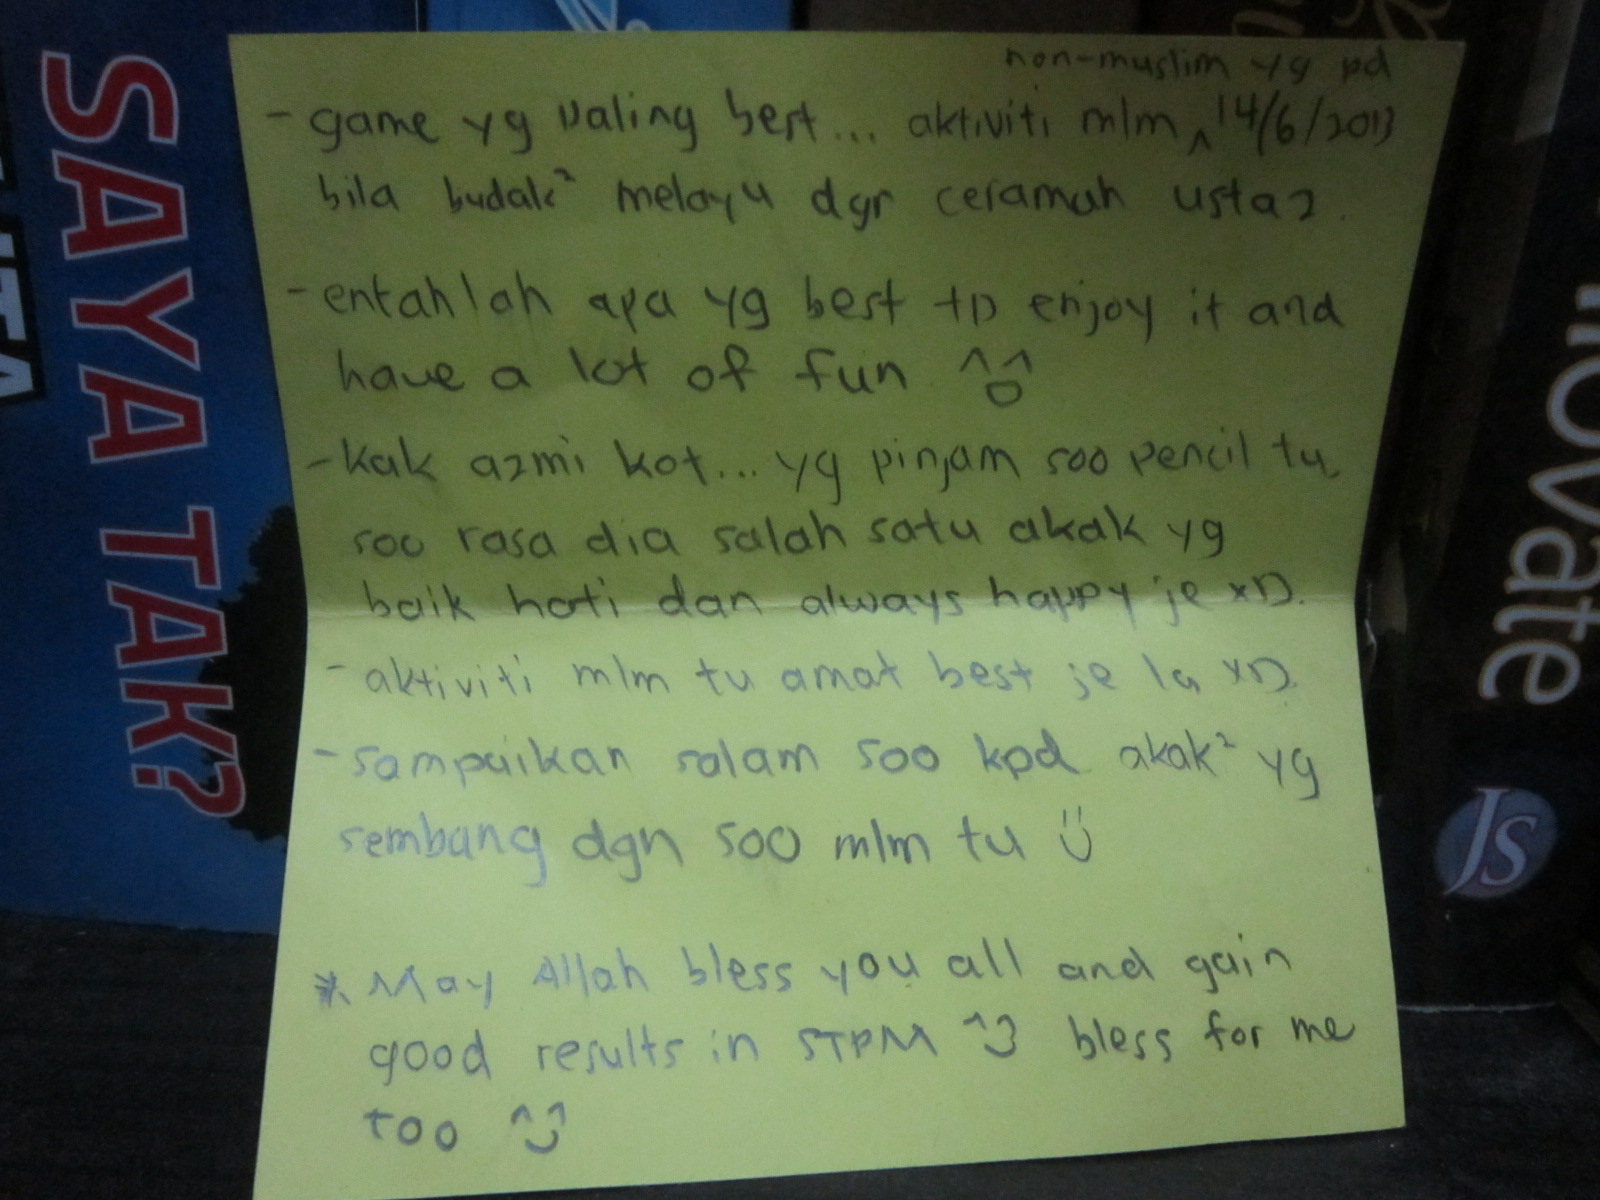 non-muslim yg pd
- game yg paling best... aktiviti mlm ^ 14/6/2013
bila budak² melayu dgr ceramah ustaz.
- entahlah apa yg best tp enjoy it and
have a lot of fun ^o^
- kak azmi kot... yg pinjam soo pencil tu
soo rasa dia salah satu akak yg
baik hati dan always happy je xD.
- aktiviti mlm tu amat best je la xD.
- sampaikan salam soo kpd akak² yg
sembang dgn soo mlm tu Ü
* May Allah bless you all and gain
good results in STPM ^J bless for me
too ^J^
SAYA TAK?
novate
JS